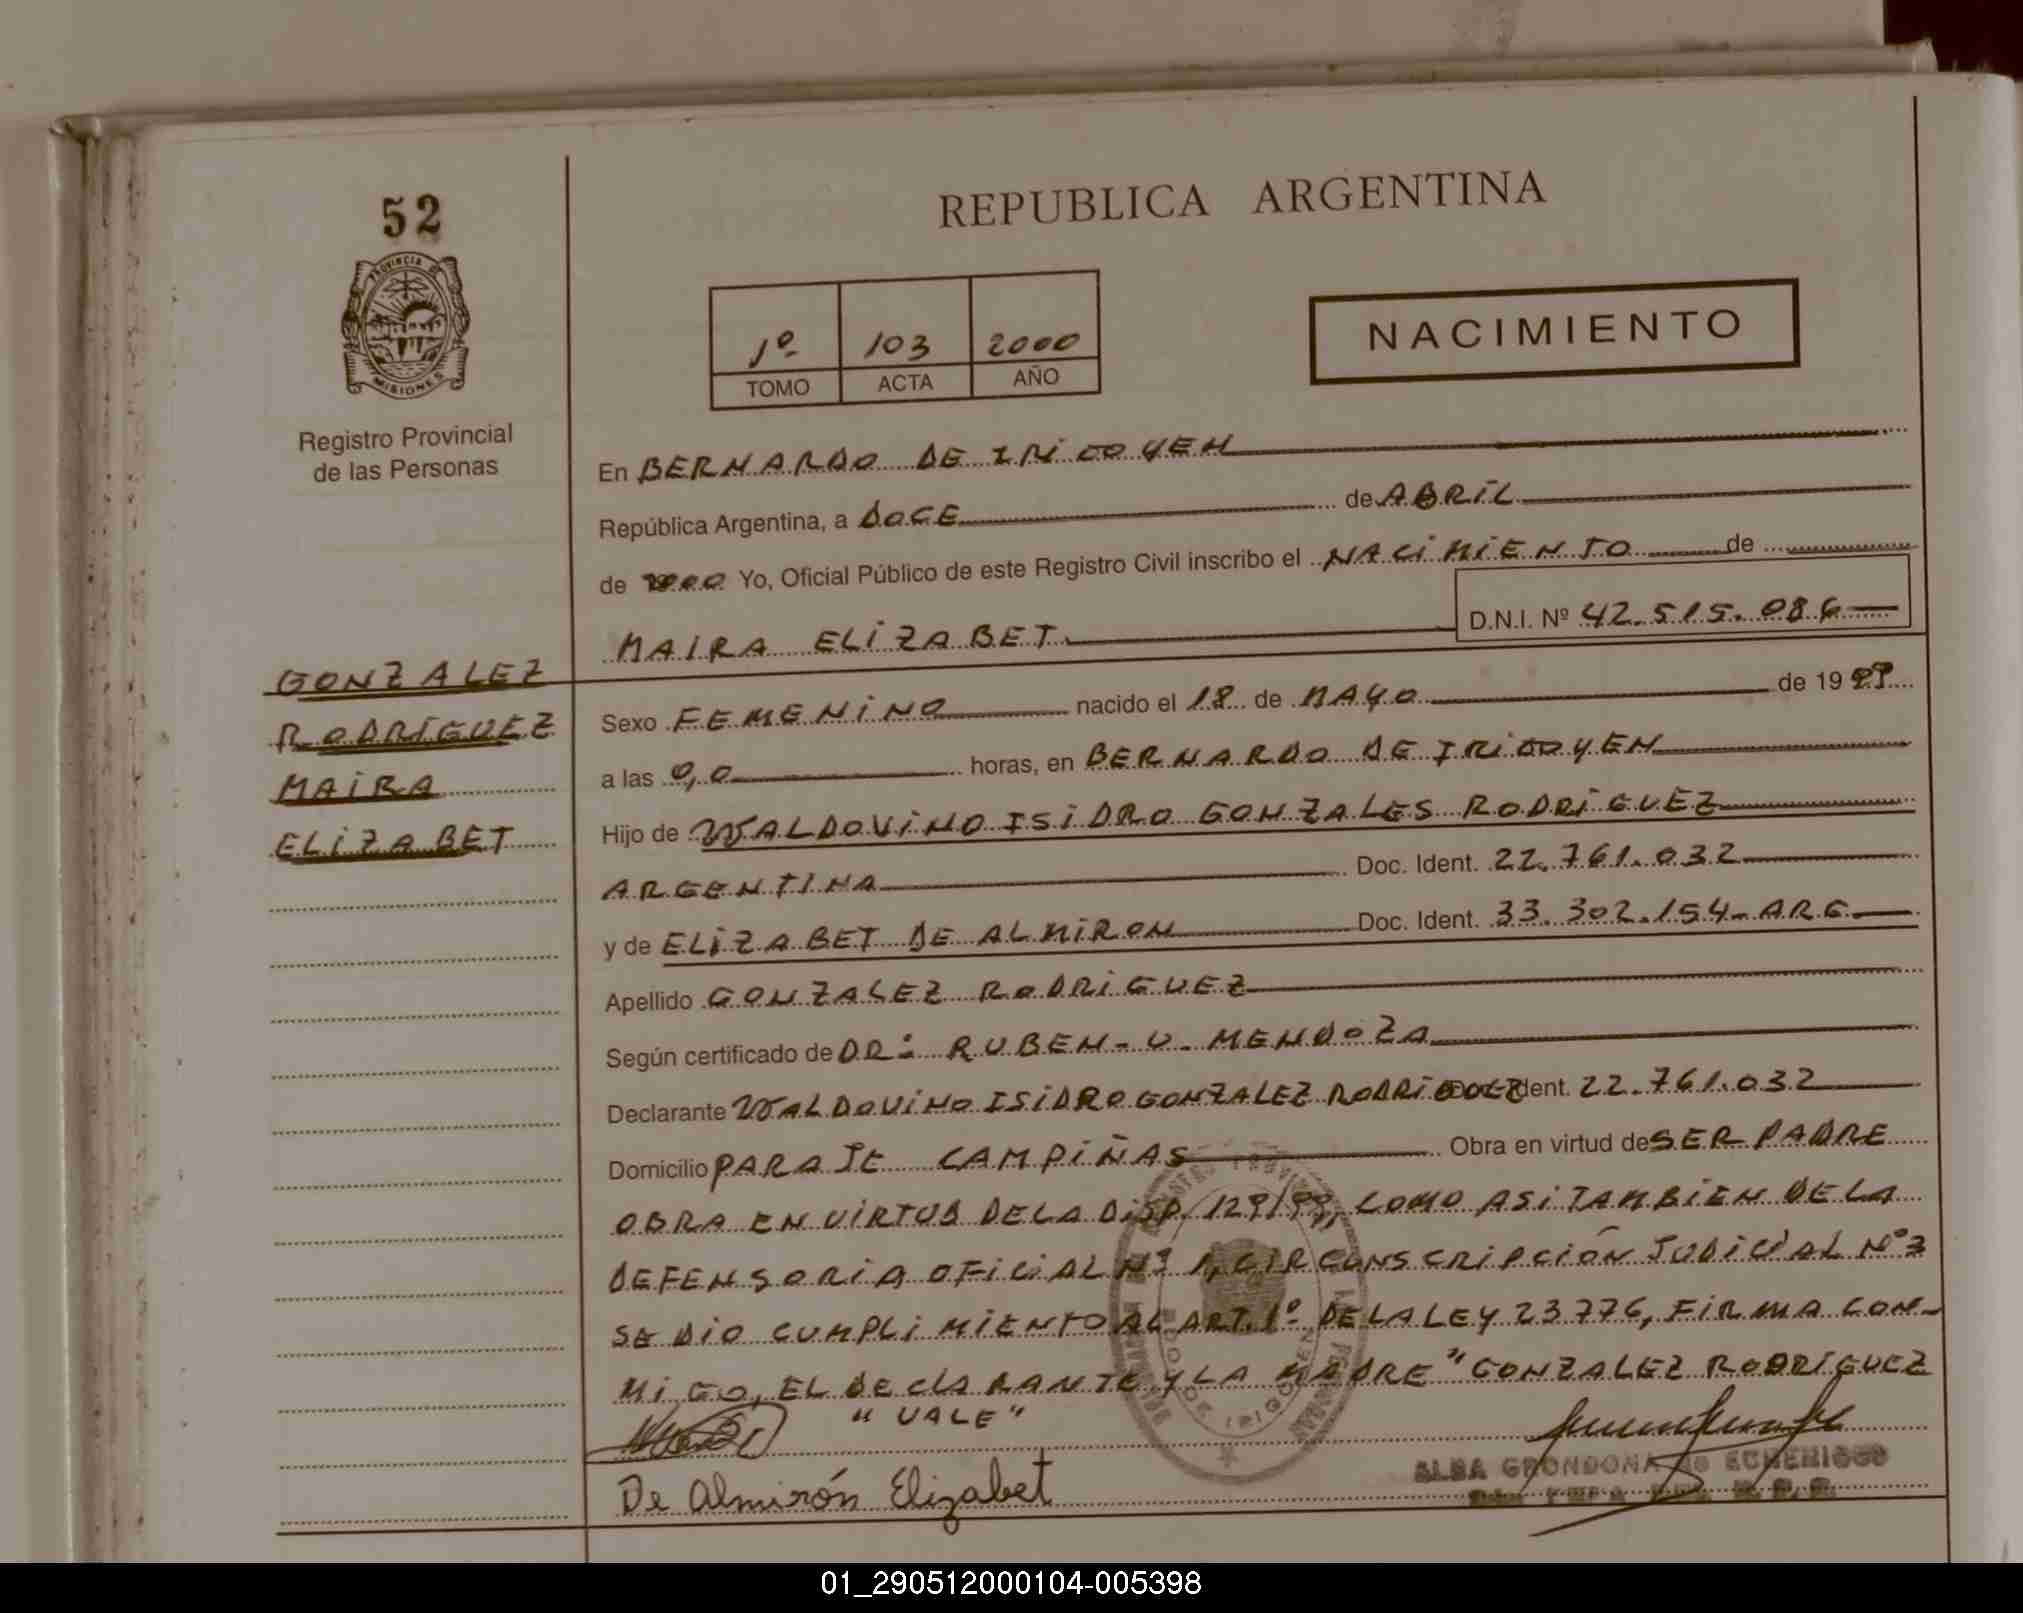 52
PROVINCIA DE
MISIONES
Registro Provincial
de las Personas
GONZALEZ
RODRÍGUEZ
MAIRA
ELIZABET
REPUBLICA ARGENTINA
1º 103 2000
TOMO ACTA AÑO
NACIMIENTO
En BERNARDO DE IRIGOYEN
República Argentina, a DOCE de ABRIL
de 2000 Yo, Oficial Público de este Registro Civil inscribo el NACIMIENTO de
MAIRA ELIZABET D.N.I. Nº 42.515.086
Sexo FEMENINO nacido el 18 de MAYO de 1999
a las 0,0 horas, en BERNARDO DE IRIGOYEN
Hijo de WALDOVINO ISIDRO GONZALES RODRIGUEZ
ARGENTINA Doc. Ident. 22.761.032
y de ELIZABET DE ALMIRON Doc. Ident. 33.302.154-ARG
Apellido GONZALEZ RODRIGUEZ
Según certificado de DR: RUBEN-U. MENDOZA
Declarante WALDOVINO ISIDRO GONZALEZ RODRIGUEZ Doc. Ident. 22.761.032
Domicilio PARAJE CAMPIÑAS Obra en virtud de SER PADRE
OBRA EN VIRTUD DE LA DISP. 129/99, COMO ASI TAMBIEN DE LA
DEFENSORIA OFICIAL Nº 1, CIRCUNSCRIPCIÓN JUDICIAL Nº 3
SE DIO CUMPLIMIENTO AL ART. 1º DE LA LEY 23776, FIRMA CON-
MIGO, EL DECLARANTE Y LA MADRE "GONZALEZ RODRÍGUEZ
" VALE "
De Almirón Elizabet
ALBA GRONDONA de ECHENIQUE
01_290512000104-005398